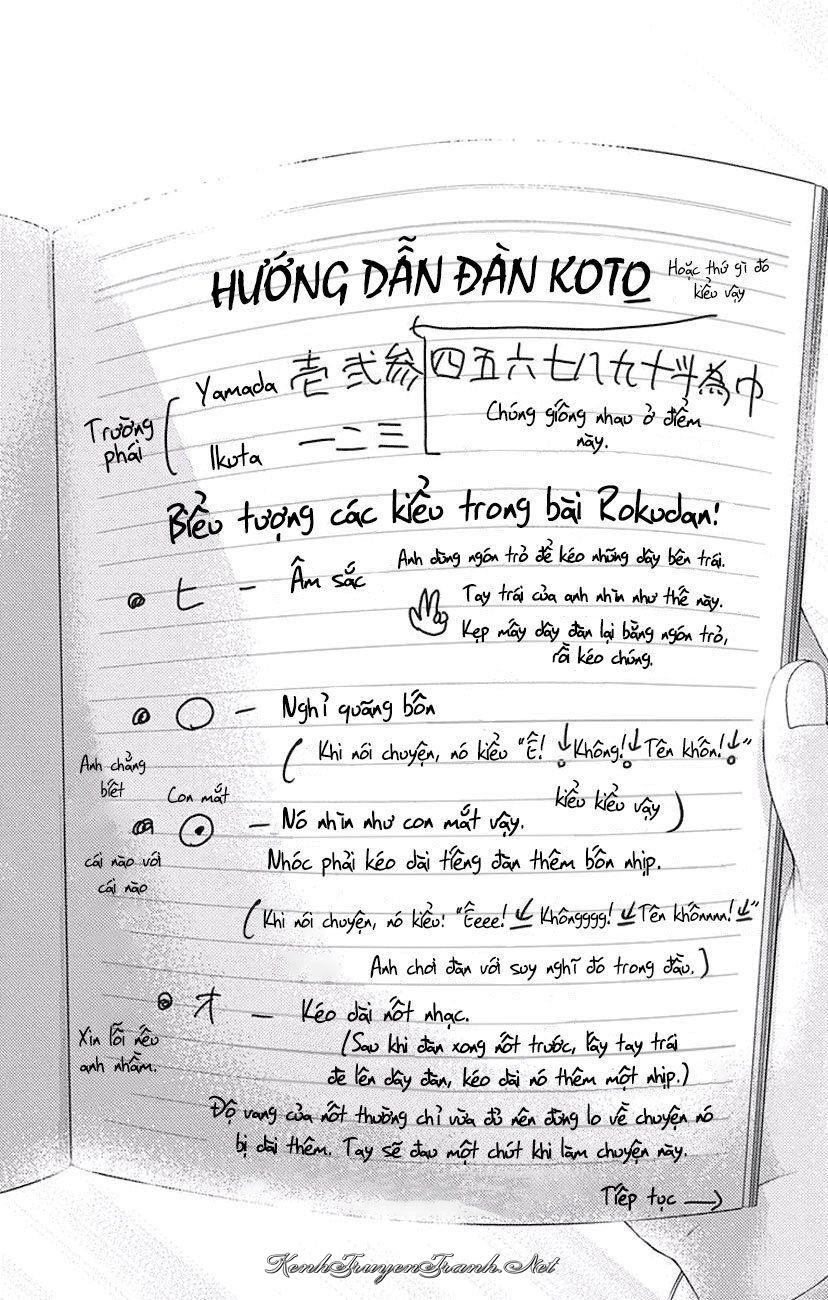 HƯỚNG DẪN ĐÀN KOTO
Hoặc thứ gì đó
kiểu vậy
Trường
phái
Yamada 壱 弐 参 四五六七八九十斗為巾
Chúng giống nhau ở điểm
này.
Ikuta 一 二 三
Biểu tượng các kiểu trong bài Rokudan!
ヒ — Âm sắc
Anh dùng ngón trỏ để kéo những dây bên trái.
Tay trái của anh nhìn như thế này.
Kẹp mấy dây đàn lại bằng ngón trỏ,
rồi kéo chúng.
○ — Nghỉ quãng bốn
(Khi nói chuyện, nó kiểu "Ê! ↓ Không! ↓ Tên khốn! ↓"
kiểu kiểu vậy)
Anh chẳng
biết
cái nào với
cái nào
Con mắt
⊙ — Nó nhìn như con mắt vậy.
Nhóc phải kéo dài tiếng đàn thêm bốn nhịp.
(Khi nói chuyện, nó kiểu: "Êeee! ↓ Khôngggg! ↓ Tên khốnnnn! ↓"
Anh chơi đàn với suy nghĩ đó trong đầu.)
Xin lỗi nếu
anh nhầm.
オ — Kéo dài nốt nhạc.
(Sau khi đàn xong nốt trước, lấy tay trái
đè lên dây đàn, kéo dài nó thêm một nhịp.)
Độ vang của nốt thường chỉ vừa đủ nên đừng lo về chuyện nó
bị dài thêm. Tay sẽ đau một chút khi làm chuyện này.
Tiếp tục →
KenhTruyenTranh.Net